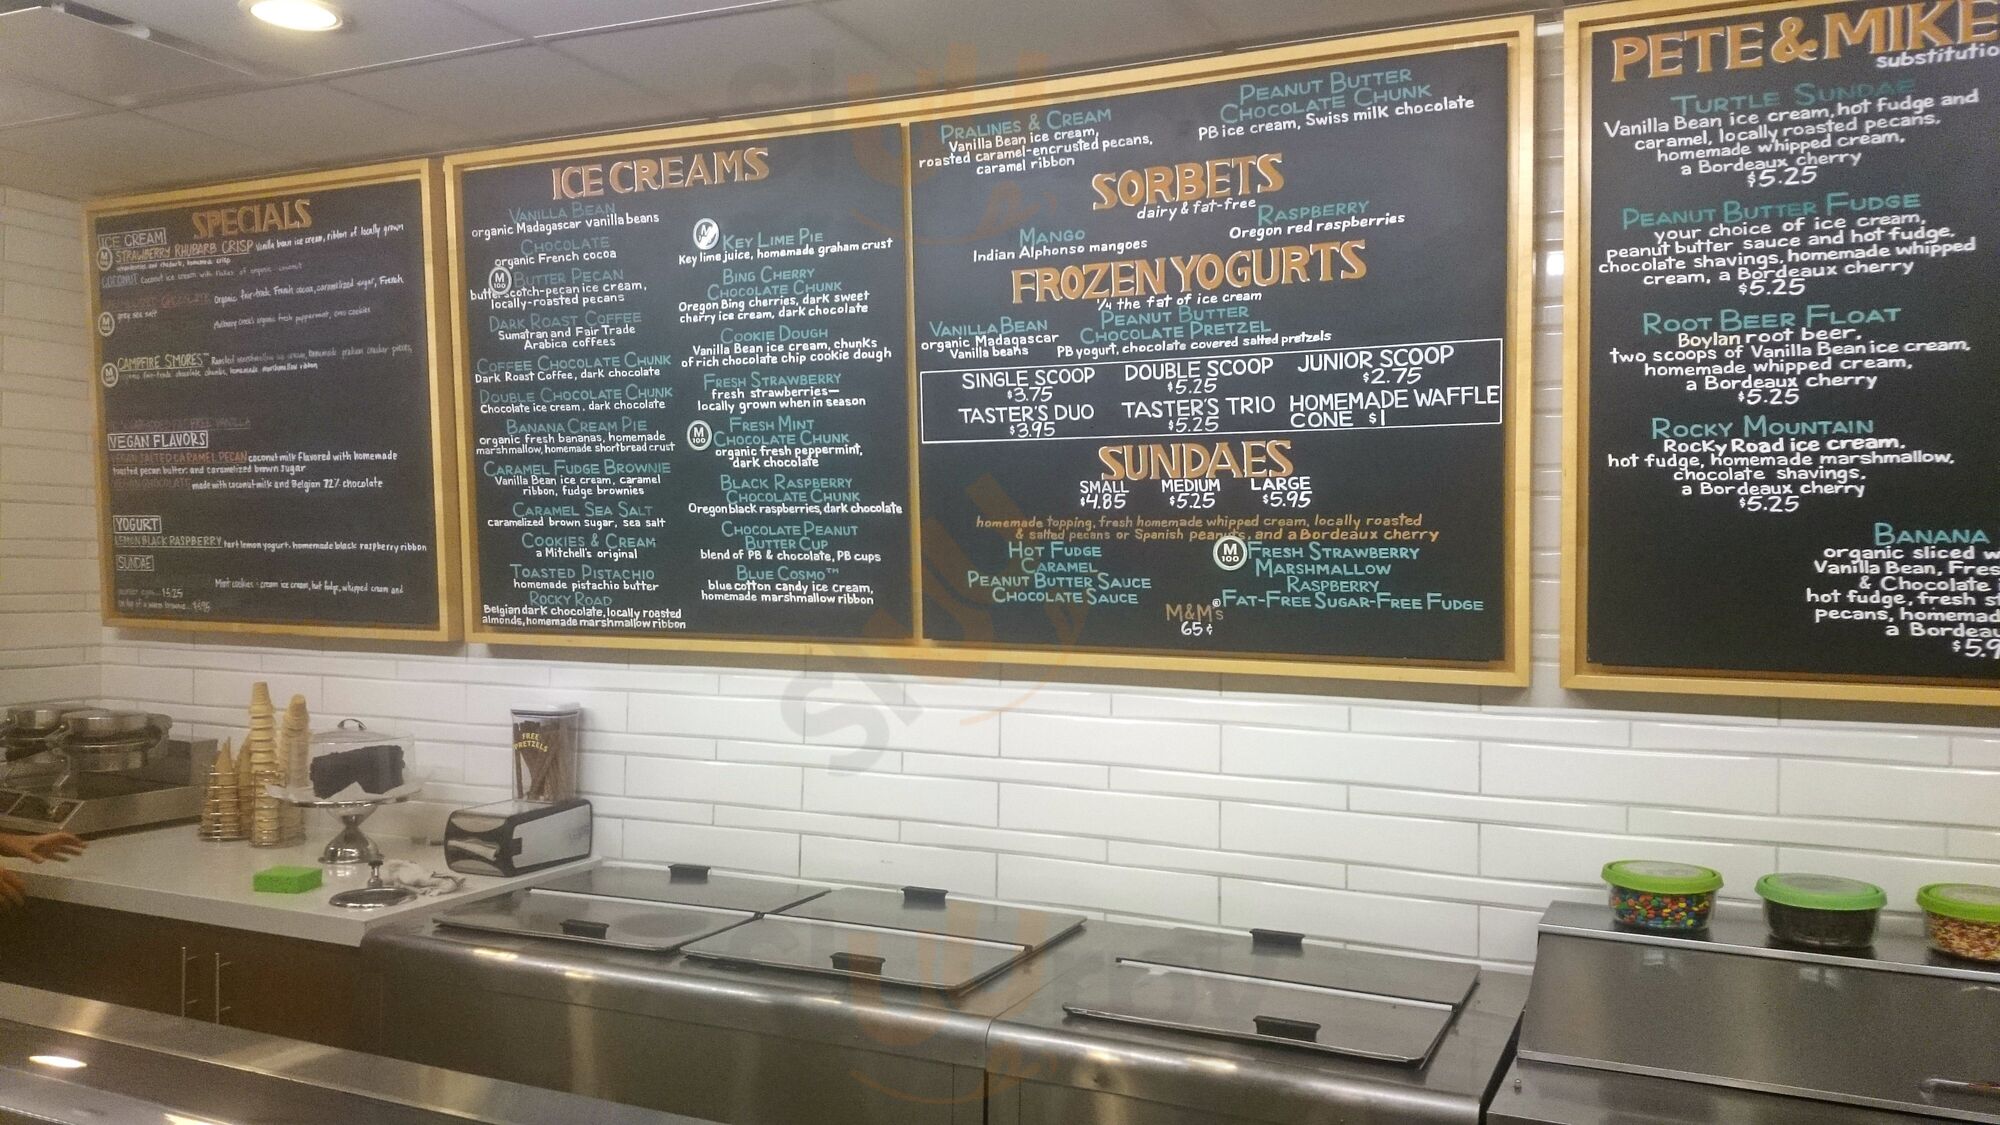 SPECIALS
ICE CREAM
STRAWBERRY RHUBARB CRISP Vanilla bean ice cream, ribbon of locally grown
strawberries and rhubarb, homemade crisp
COCONUT Coconut ice cream with flakes of organic coconut
CHOCOLATE organic fair-trade French cocoa, caramelized sugar, French
grey sea salt
organic fresh peppermint, oreo cookies
CAMPFIRE S'MORES™ Roasted marshmallow ice cream, homemade graham cracker pieces,
fair-trade chocolate chunks, homemade marshmallow ribbon
VANILLA
VEGAN FLAVORS
VEGAN SALTED CARAMEL PECAN coconut milk flavored with homemade
toasted pecan butter, and caramelized brown sugar
VEGAN CHOCOLATE made with coconut milk and Belgian 72% chocolate
YOGURT
LEMON BLACK RASPBERRY tart lemon yogurt, homemade black raspberry ribbon
SUNDAE
Mint cookies + cream ice cream, hot fudge, whipped cream and
on top of a warm brownie
ICE CREAMS
VANILLA BEAN
organic Madagascar vanilla beans
CHOCOLATE
organic French cocoa
M 100
BUTTER PECAN
butterscotch-pecan ice cream,
locally-roasted pecans
DARK ROAST COFFEE
Sumatran and Fair Trade
Arabica coffees
COFFEE CHOCOLATE CHUNK
Dark Roast Coffee, dark chocolate
DOUBLE CHOCOLATE CHUNK
Chocolate ice cream, dark chocolate
BANANA CREAM PIE
organic fresh bananas, homemade
marshmallow, homemade shortbread crust
CARAMEL FUDGE BROWNIE
Vanilla Bean ice cream, caramel
ribbon, fudge brownies
CARAMEL SEA SALT
caramelized brown sugar, sea salt
COOKIES & CREAM
a Mitchell's original
TOASTED PISTACHIO
homemade pistachio butter
ROCKY ROAD
Belgian dark chocolate, locally roasted
almonds, homemade marshmallow ribbon
KEY LIME PIE
Key lime juice, homemade graham crust
BING CHERRY
CHOCOLATE CHUNK
Oregon Bing cherries, dark sweet
cherry ice cream, dark chocolate
COOKIE DOUGH
Vanilla Bean ice cream, chunks
of rich chocolate chip cookie dough
FRESH STRAWBERRY
fresh strawberries—
locally grown when in season
M 100
FRESH MINT
CHOCOLATE CHUNK
organic fresh peppermint,
dark chocolate
BLACK RASPBERRY
CHOCOLATE CHUNK
Oregon black raspberries, dark chocolate
CHOCOLATE PEANUT
BUTTER CUP
blend of PB & chocolate, PB cups
BLUE COSMO™
blue cotton candy ice cream,
homemade marshmallow ribbon
PRALINES & CREAM
Vanilla Bean ice cream,
roasted caramel-encrusted pecans,
caramel ribbon
PEANUT BUTTER
CHOCOLATE CHUNK
PB ice cream, Swiss milk chocolate
SORBETS
dairy & fat-free
MANGO
Indian Alphonso mangoes
RASPBERRY
Oregon red raspberries
FROZEN YOGURTS
1/4 the fat of ice cream
VANILLA BEAN
organic Madagascar
Vanilla beans
PEANUT BUTTER
CHOCOLATE PRETZEL
PB yogurt, chocolate covered salted pretzels
SINGLE SCOOP
$3.75
DOUBLE SCOOP
$5.25
JUNIOR SCOOP
$2.75
TASTER'S DUO
$3.95
TASTER'S TRIO
$5.25
HOMEMADE WAFFLE
CONE $1
SUNDAES
SMALL MEDIUM LARGE
$4.85 $5.25 $5.95
homemade topping, fresh homemade whipped cream, locally roasted
& salted pecans or Spanish peanuts, and a Bordeaux cherry
HOT FUDGE
CARAMEL
PEANUT BUTTER SAUCE
CHOCOLATE SAUCE
M 100
FRESH STRAWBERRY
MARSHMALLOW
RASPBERRY
FAT-FREE SUGAR-FREE FUDGE
M&M's®
65¢
PETE & MIKE
substitutio
TURTLE SUNDAE
Vanilla Bean ice cream, hot fudge and
caramel, locally roasted pecans,
homemade whipped cream,
a Bordeaux cherry
$5.25
PEANUT BUTTER FUDGE
your choice of ice cream,
peanut butter sauce and hot fudge,
chocolate shavings, homemade whipped
cream, a Bordeaux cherry
$5.25
ROOT BEER FLOAT
Boylan root beer,
two scoops of Vanilla Bean ice cream,
homemade whipped cream,
a Bordeaux cherry
$5.25
ROCKY MOUNTAIN
Rocky Road ice cream,
hot fudge, homemade marshmallow,
chocolate shavings,
a Bordeaux cherry
$5.25
BANANA
organic sliced
Vanilla Bean, Fres
& Chocolate
hot fudge, fresh st
pecans, homemad
a Bordeau
$5.9
FREE
PRETZELS